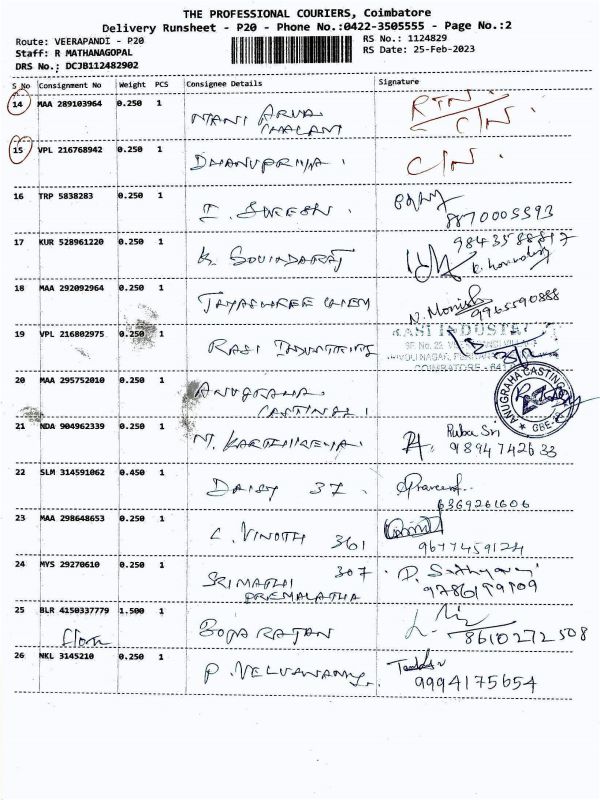 THE PROFESSIONAL COURIERS, Coimbatore
Delivery Runsheet - P20 - Phone No.:0422-3505555 - Page No.:2
Route: VEERAPANDI - P20
RS No.: 1124829
Staff: R MATHANAGOPAL
RS Date: 25-Feb-2023
DRS No.: DCJB112482902
S No Consignment No Weight PCS Consignee Details Signature
14 MAA 289103964 0.250 1 MANI ARUNA RTN
CHALAM C/N.
15 VPL 216768942 0.250 1 DHANUPRIYA. C/N.
16 TRP 5838283 0.250 1 I. SURESH.
8870005593
17 KUR 528961220 0.250 1 K. GOVINDARAJ 9843588817
18 MAA 292092964 0.250 1 JAYASHREE CHEM N. Monish
9965590888
19 VPL 216802975 0.250 1 RASI INDUSTRIES RASI INDUSTR
COIMBATORE - 641
20 MAA 295752010 0.250 1 ANUGRAHA ANUGRAHA CASTINGS
CASTINGS CBE
21 NDA 904962339 0.250 1 N. KARTHIKEYA. Ruba Sri
9894742633
22 SLM 314591062 0.450 1 DAISY 37. Praveen
6369261606
23 MAA 298648653 0.250 1 C. VINOTH 361
9677459124
24 MYS 29270610 0.250 1 SRIMATHI 307 P. Sathya
PREMALATHA 9786199109
25 BLR 4150337779 1.500 1 BOJARAJAN
8610272508
26 NKL 3145210 0.250 1 P. VELUSWAMY.
9994175654